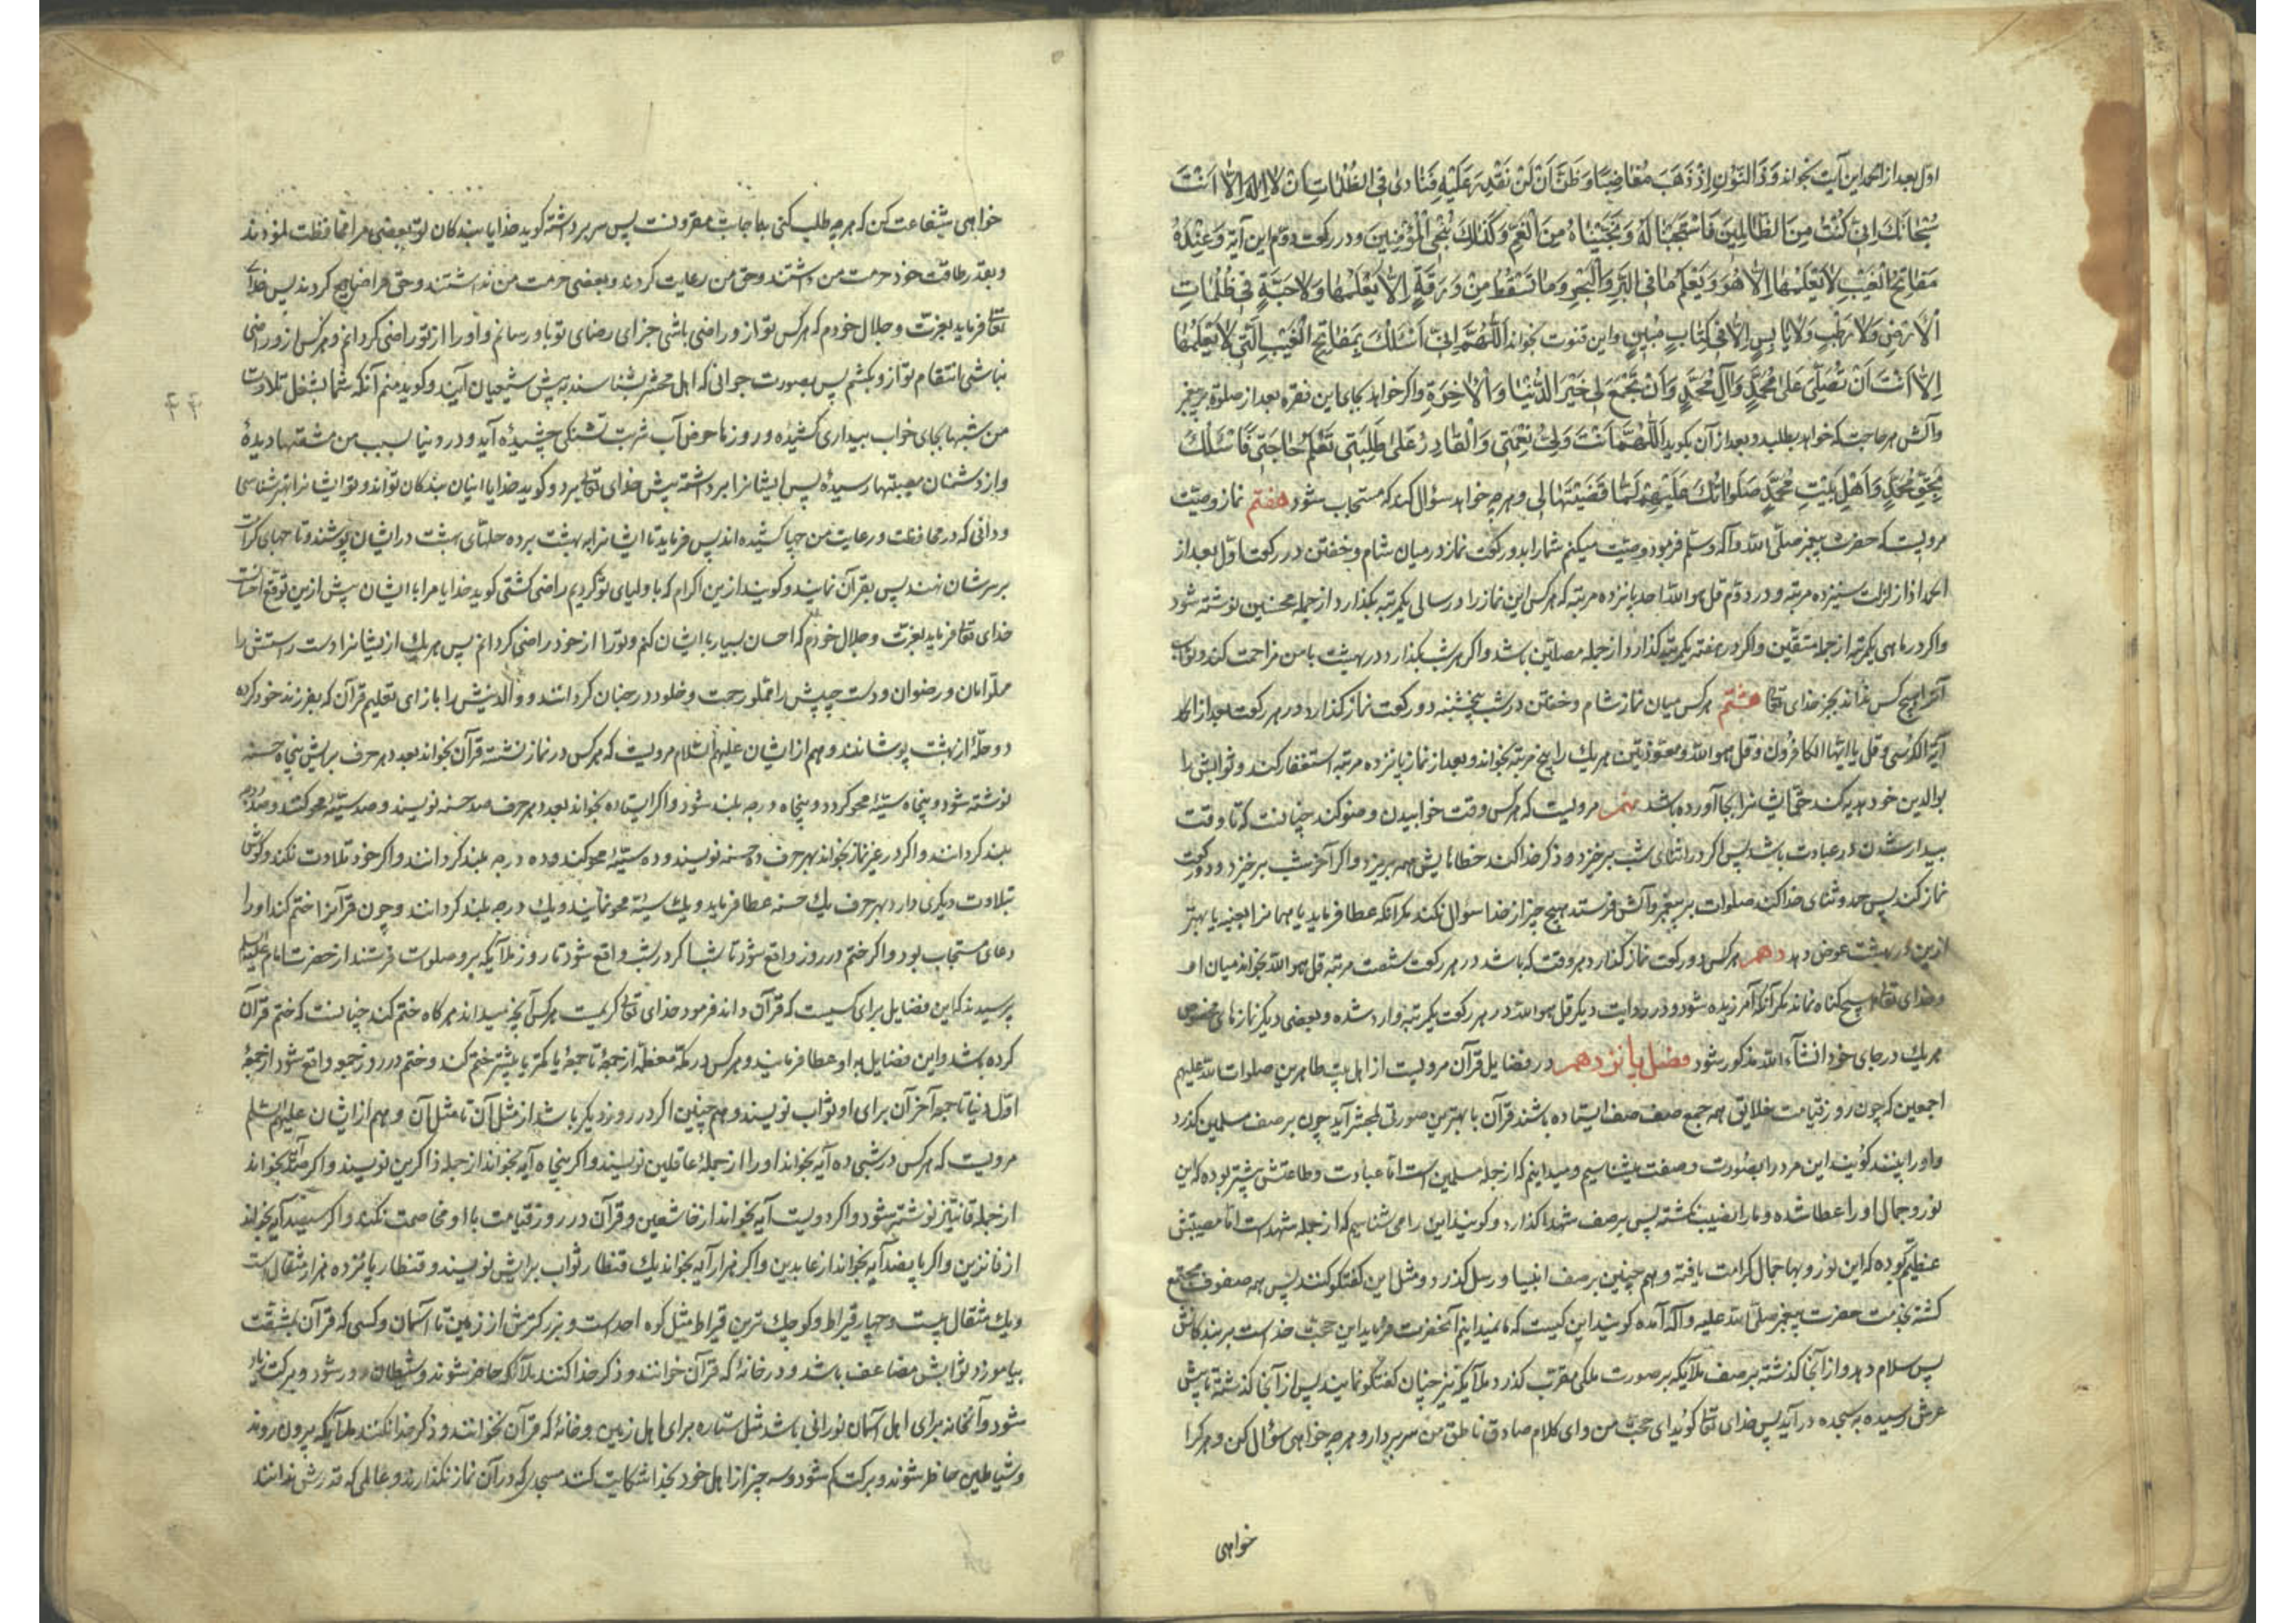 اول بعد از الحمد این آیت بخواند وَذَا النُّونِ اِذْ ذَهَبَ مُغَاضِبًا وَظَنَّ اَنْ لَنْ نَقْدِرَ عَلَیْهِ فَنَادٰی فِی الظُّلُمَاتِ اَنْ لَا اِلٰهَ اِلَّا اَنْتَ
سُبْحَانَكَ اِنِّی كُنْتُ مِنَ الظَّالِمِینَ فَاسْتَجَبْنَا لَهُ وَنَجَّیْنَاهُ مِنَ الْغَمِّ وَكَذٰلِكَ نُنْجِی الْمُؤْمِنِینَ و در ركعت دوم این آیه وَعِنْدَهُ
مَفَاتِحُ الْغَیْبِ لَا یَعْلَمُهَا اِلَّا هُوَ وَیَعْلَمُ مَا فِی الْبَرِّ وَالْبَحْرِ وَمَا تَسْقُطُ مِنْ وَرَقَةٍ اِلَّا یَعْلَمُهَا وَلَا حَبَّةٍ فِی ظُلُمَاتِ
الْاَرْضِ وَلَا رَطْبٍ وَلَا یَابِسٍ اِلَّا فِی كِتَابٍ مُبِینٍ و این قنوت بخواند اَللّٰهُمَّ اِنِّی اَسْئَلُكَ بِمَفَاتِحِ الْغَیْبِ الَّتِی لَا یَعْلَمُهَا
اِلَّا اَنْتَ اَنْ تُصَلِّیَ عَلٰی مُحَمَّدٍ وَآلِ مُحَمَّدٍ وَاَنْ تَجْمَعَ لِی خَیْرَ الدُّنْیَا وَالْاٰخِرَةِ و اكر خواهد بجای این فقره بعد از صلوة بر پیغمبر
و آلش هر حاجت كه خواهد بطلبد و بعد از آن بكوید اَللّٰهُمَّ اَنْتَ وَلِیُّ نِعْمَتِی وَالْقَادِرُ عَلٰی طَلِبَتِی تَعْلَمُ حَاجَتِی فَاَسْئَلُكَ
بِحَقِّ مُحَمَّدٍ وَاَهْلِ بَیْتِ مُحَمَّدٍ صَلَوَاتُكَ عَلَیْهِمْ لَمَّا قَضَیْتَهَا لِی و هر چه خواهد سؤال كند كه مستجاب شود هفتم نماز وصیّت
مرویست كه حضرت پیغمبر صلّی الله و آله و سلّم فرمود وصیّت میكنم شما را بدو ركعت نماز در میان شام و خفتن در ركعت اوّل بعد از
الحمد اذا زلزلت سیزده مرتبه و در دوّم قل هو الله احد پانزده مرتبه كه هر كس این نماز را در سالی یكمرتبه بكذارد از جمله محسنین نوشته شود
و اكر در ماهی یكمرتبه از جمله متقین و اكر در هفته یكمرتبه كذارد از جمله مصلّین باشد و اكر هر شب بكذارد در بهشت با من مزاحمت كند و ثواب
آنرا هیچ كس نداند بجز خدای تعالی هشتم هر كس میان نماز شام و خفتن در شب پنجشنبه دو ركعت نماز كذارد در هر ركعت بعد از الحمد
آیة الكرسی و قل یا ایها الكافرون و قل هو الله و معوّذتین هر یك را پنج مرتبه بخواند و بعد از نماز پانزده مرتبه استغفار كند و ثوابش را
بوالدین خود هدیه كند حق ایشانرا بجا آورده باشد نهم مرویست كه هر كس وقت خوابیدن وضو كند چنانست كه تا وقت
بیدار شدن در عبادت باشد پس اكر در اثنای شب برخیزد و ذكر خدا كند خطاهایش همه بریزد و اكر آخر شب برخیزد و دو ركعت
نماز كند پس حمد و ثنای خدا كند صلوات بر پیغمبر و آلش فرستد هیچ چیز از خدا سوال نكند مكر آنكه عطا فرماید یا همانرا بعینه یا بهتر
ازین در بهشت عوض دهد دهم هر كس دو ركعت نماز كذارد هر وقت كه باشد در هر ركعت شصت مرتبه قل هو الله بخواند میان او
و خدای تعالی هیچ كناه نماند مكر آنكه آمرزیده شود و در روایت دیكر قل هو الله در هر ركعت یكمرتبه وارد شده و بعضی دیكر نمازهای مخصوص
هر یك در جای خود انشاء الله مذكور شود فصل پانزدهم در فضایل قرآن مرویست از اهل بیت طاهرین صلوات الله علیهم
اجمعین كه چون روز قیامت خلایق همه جمع صف صف ایستاده باشند قرآن با بهترین صورتی بمحشر آید چون بر صف مسلمین كذرد
و او را بینند كویند این مرد را بصورت و صفت میشناسیم و میدانیم كه از جمله مسلمین است امّا عبادت و طاعتش بیشتر بوده كه این
نور و جمال او را عطا شده و ما را نصیب نكشته پس بر صف شهدا كذارد و كویند این را می شناسیم كه از جمله شهداست امّا مصیبتش
عظیم تر بوده كه این نور و بها و جمال كرامت یافته و هم چنین بر صف انبیا و رسل كذرد و مثل این كفتكو كنند پس همه صفوف مجتمع
كشته بخدمت حضرت پیغمبر صلّی الله علیه و آله آمده كویند این كیست كه ما نمیدانیم آنحضرت فرماید این حجت خداست بر بندكانش
پس سلام دهد و از آنجا كذشته بر صف ملایكه بر صورت ملكی مقرّب كذرد و ملایكه نیز چنان كفتكو نمایند پس از آنجا كذشته تا پیش
عرش رسیده به سجده در آید پس خدای تعالی كوید ای حجت من و ای كلام صادق ناطق من سر بردار و هر چه خواهی سؤال كن و هر كرا
خواهی
خواهی شفاعت كن كه هر چه طلب كنی با جابت مقرونست پس سر برداشته كوید خدایا بندكان تو بعضی مرا محافظت نمودند
و بقدر طاقت خود حرمت من داشتند و حق من رعایت كردند و بعضی حرمت من نداشتند و حق مرا ضایع كردند پس خدای
تعالی فرماید بعزت و جلال خودم كه هر كس تو از و راضی باشی جزای رضای تو باو رسانم و او را از تو راضی كردانم و هر كس از و راضی
نباشی انتقام تو از و بكشم پس بصورت جوانی كه اهل محشر بشناسند به پیش شیعیان آیند و كوید منم آنكه شما بشغل تلاوت
من شبها بجای خواب بیداری كشیده و روزها عوض آب شربت تشنكی چشیده آید و در دنیا بسبب من مشقتها دیده
و از دشمنان مصیبتها رسیده پس ایشانرا برداشته پیش خدای تعالی برد و كوید خدایا اینان بندكان تواند و تو ایشانرا بهتر شناسی
و دانی كه در محافظت و رعایت من چها كشیده اند پس فرماید تا ایشانرا به بهشت برده حلّهای بهشت در ایشان پوشند و تاجهای كرامت
بر سرشان نهند پس بقرآن نمایند و كویند ازین اكرام كه با اولیای تو كردیم راضی كشتی كوید خدایا مرا با ایشان بیش ازین توقع احسانست
خدای تعالی فرماید بعزت و جلال خودم كه احسان بسیار با ایشان كنم و تو را از خود راضی كردانم پس هر یك از ایشانرا دست راستش را
مملو از امان و رضوان و دست چپش را مملو رحمت و خلود در جنان كردانند و والدینش را بازای تعلیم قرآن كه بفرزند خود كرده
دو حلّه از بهشت پوشانند و هم از ایشان علیهم السّلام مرویست كه هر كس در نماز نشسته قرآن بخواند بعدد هر حرف برایش پنجاه حسنه
نوشته شود و پنجاه سیّئه محو كردد و پنجاه درجه بلند شود و اكر ایستاده بخواند بعدد هر حرف صد حسنه نویسند و صد سیّئه محو كنند و صد درجه
بلند كردانند و اكر در غیر نماز بخواند بهر حرف ده حسنه نویسند و ده سیّئه محو كنند و ده درجه بلند كردانند و اكر خود تلاوت نكند و كوش
بتلاوت دیكری دارد بهر حرف یك حسنه عطا فرماید و یك سیّئه محو نمایند و یك درجه بلند كردانند و چون قرآنرا ختم كند او را
دعای مستجاب بود و اكر ختم در روز واقع شود تا شب و اكر در شب واقع شود تا روز ملایكه برو صلوات فرستند از حضرت امام علیه السلام
پرسیدند كه این فضایل برای كسیست كه قرآن داند فرمود خدای تعالی كریمست هر كس آنچه میداند هر كاه ختم كند چنانست كه ختم قرآن
كرده باشد و این فضایل باو عطا فرمایند و هر كس در مكّه معظّمه از جمعه تا جمعه یا كمتر یا بیشتر ختم كند و ختم در روز جمعه واقع شود از جمعهٔ
اوّل دنیا تا جمعه آخر آن برای او ثواب نویسند و هم چنین اكر در روز دیكر باشد از مثل آن تا مثل آن و هم از ایشان علیهم السّلام
مرویست كه هر كس در شبی ده آیه بخواند او را از جملهٔ غافلین ننویسند و اكر پنجاه آیه بخواند از جمله ذاكرین نویسند و اكر صد آیه بخواند
از جمله قانتین نوشته شود و اكر دویست آیه بخواند از خاشعین و قرآن در روز قیامت با او مخاصمت نكند و اكر سیصد آیه بخواند
از فائزین و اكر پانصد آیه بخواند از عابدین و اكر هزار آیه بخواند یك قنطار ثواب برایش نویسند و قنطار پانزده هزار مثقال است
و یك مثقال بیست و چهار قیراط و كوچك ترین قیراط مثل كوه احد است و بزركترش از زمین تا آسمان و كسی كه قرآن بمشقت
بیاموزد ثوابش مضاعف باشد و در خانهٔ كه قرآن خوانند و ذكر خدا كنند ملایكه حاضر شوند و شیطان دور شود و بركت زیاد
شود و آنخانه برای اهل آسمان نورانی باشد مثل ستاره برای اهل زمین و خانهٔ كه قرآن نخوانند و ذكر خدا نكنند ملایكه بیرون روند
و شیاطین حاضر شوند و بركت كم شود و سه چیز از اهل خود بخدا شكایت كنند مسجدی كه در آن نماز نكذارند و عالمی كه قدرش ندانند